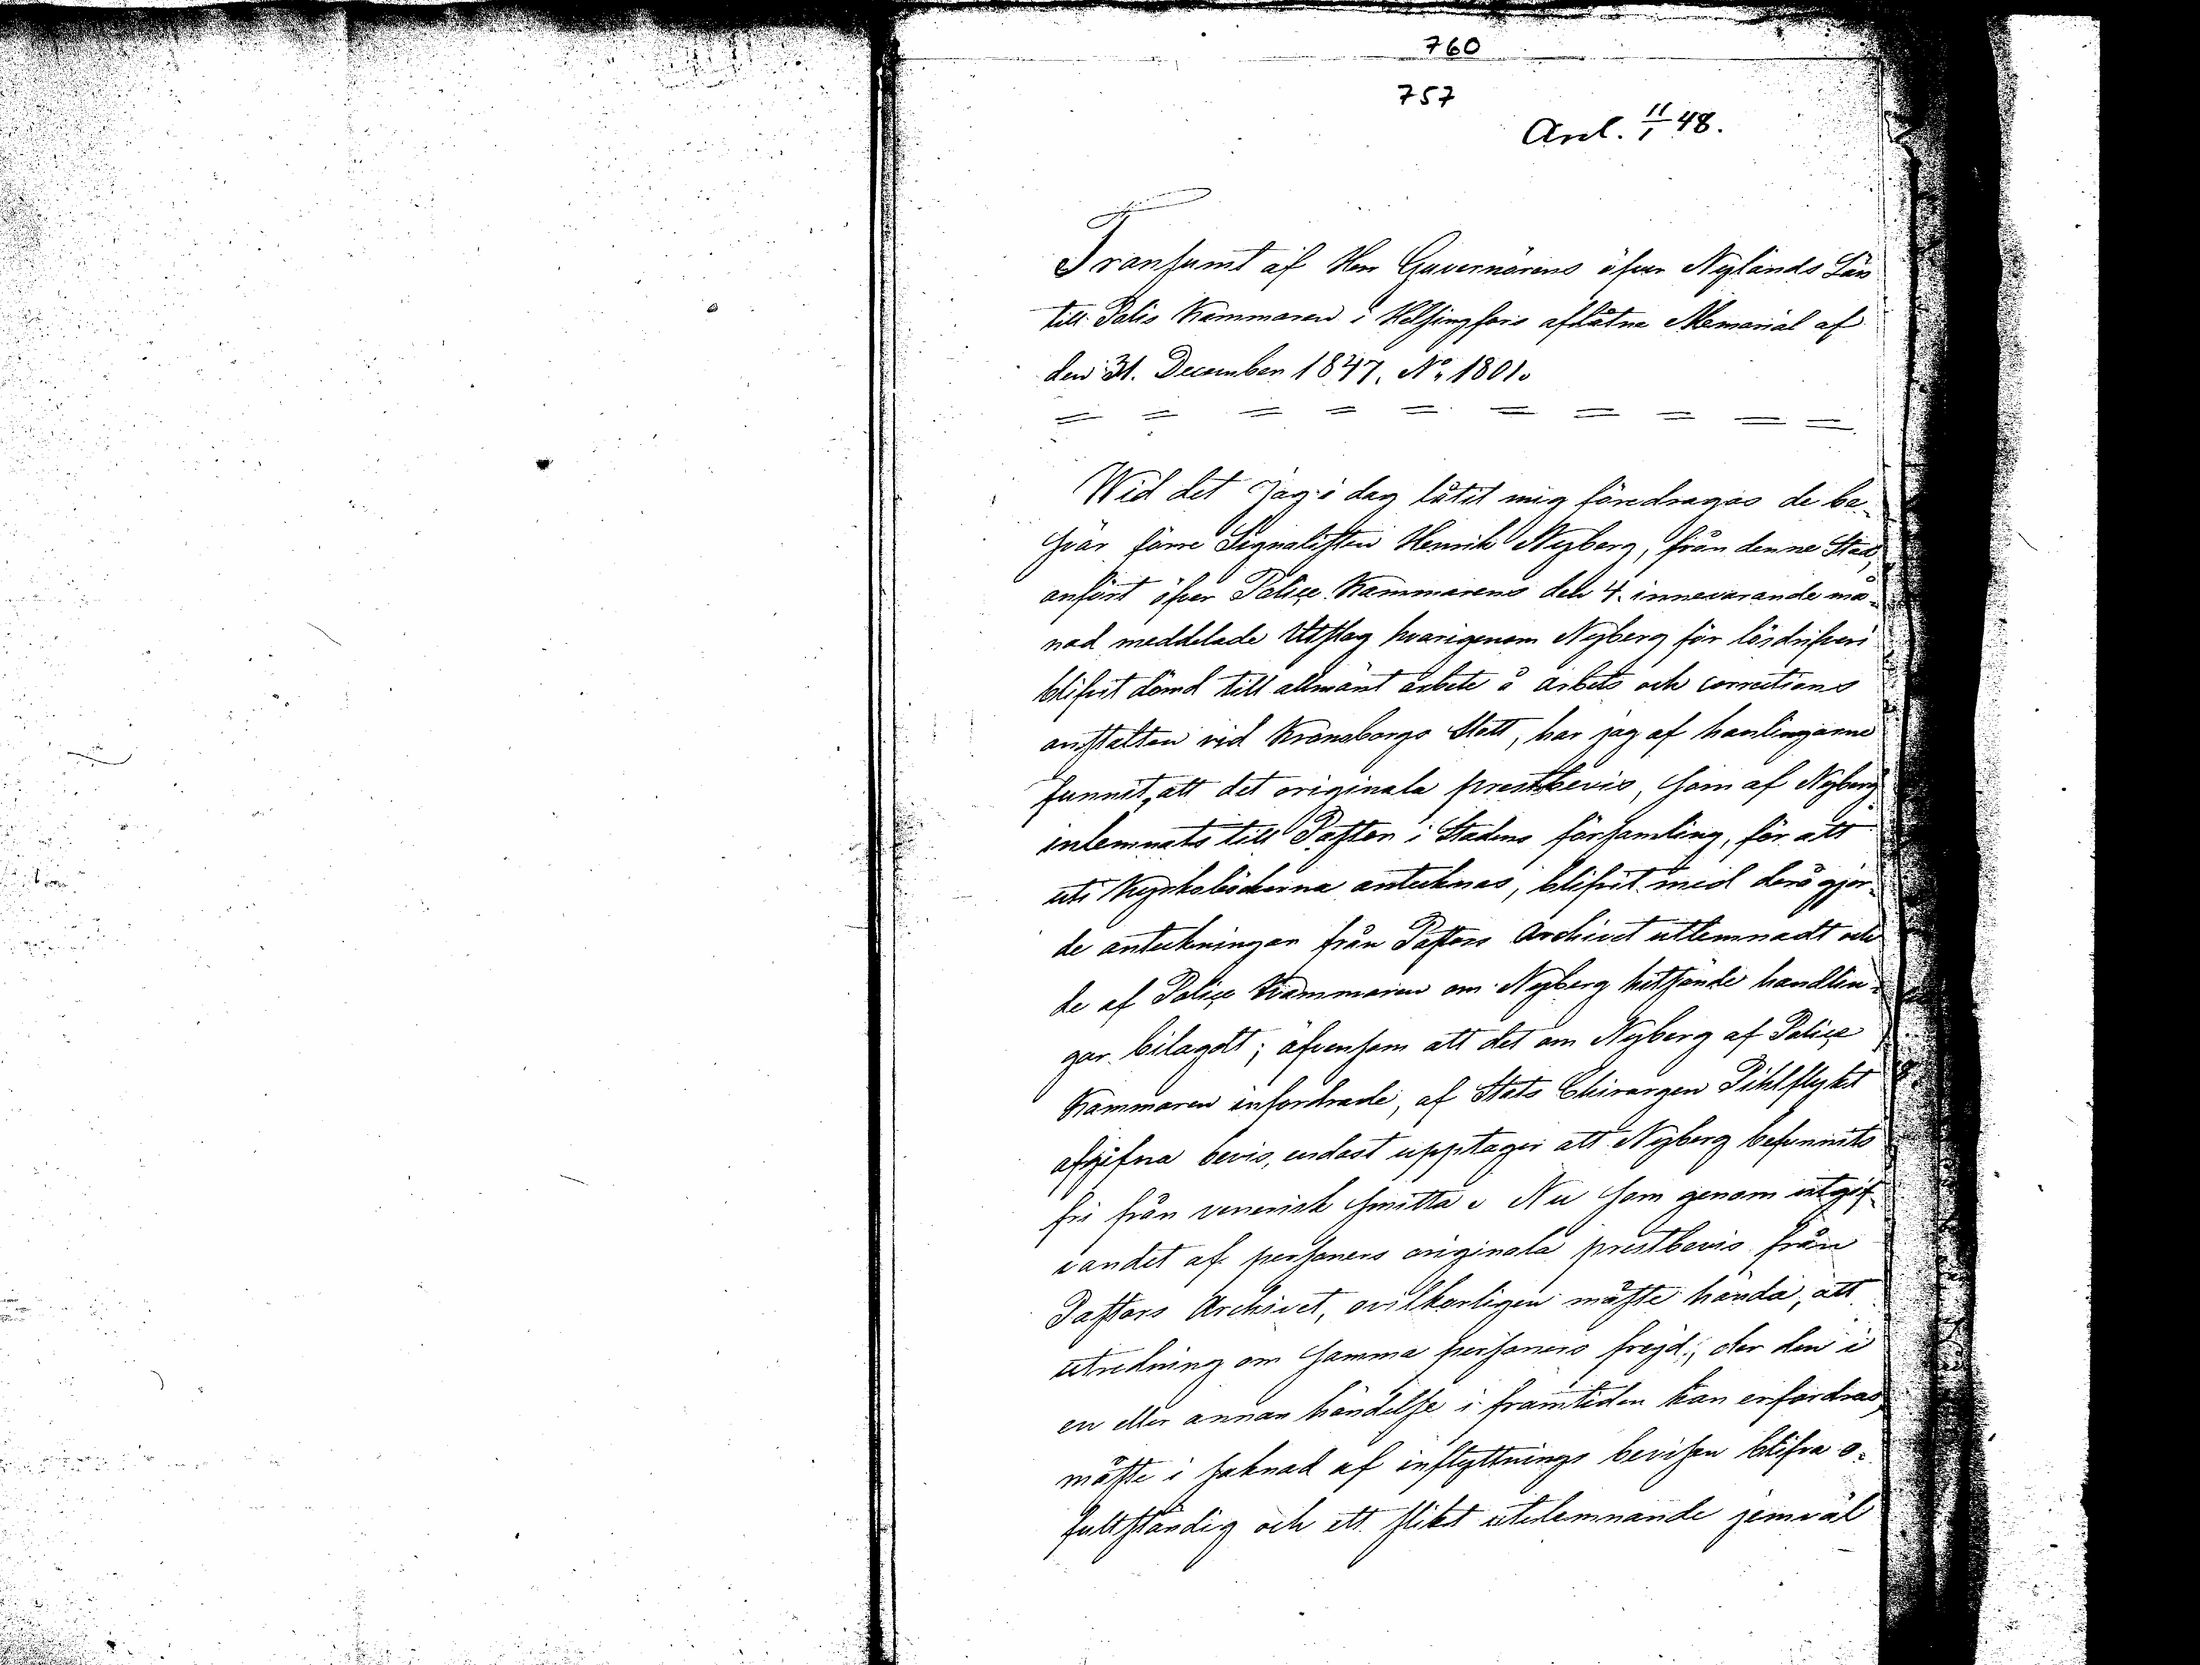 760
757
Anl. 11/1 48.
Transumt af Herr Guvernörens öfver Nylands Län
till Polis Kammaren i Helsingfors aflåtne Memorial af
den 31. December 1847. No 1801.
Wid det Jag i dag låtit mig föredragas de be-
svär förre Signalisten Henrik Nyberg, från denne Stad,
anfört öfver Police Kammarens den 4. innevarande må-
nad meddelade Utslag hvarigenom Nyberg för lösdrifveri
blifvit dömd till allmänt arbete å arbets och corrections
anstalten vid Kronoborgs Slott, har jag af hanlingarne
funnit, att det originala prestbevis, som af Nyberg
inlemnats till Pastor i Stadens församling, för att
uti Kyrkoböckerna antecknas, blifvit med derå gjor-
de anteckningar från Pastors Archivet utlemnadt och
de af Police Kammaren om Nyberg hitsände handlin-
gar bilagdt; äfvensom att det om Nyberg af Police
Kammaren infordrade, af Stads Chirurgen Pihlflykt
afgifna bevis, endast upptager att Nyberg befunnits
fri från venerisk smitta. Nu som genom utgif-
vandet af personers originala prestbevis från
Pastors Archivet, ovilkorligen måste hända, att
utredning om samma personers frejd, der den i
en eller annan händelse i framtiden kan erfordras,
måste i saknad af inflyttnings bevisen blifva o-
fullständig och ett slikt utelemnande jemväl